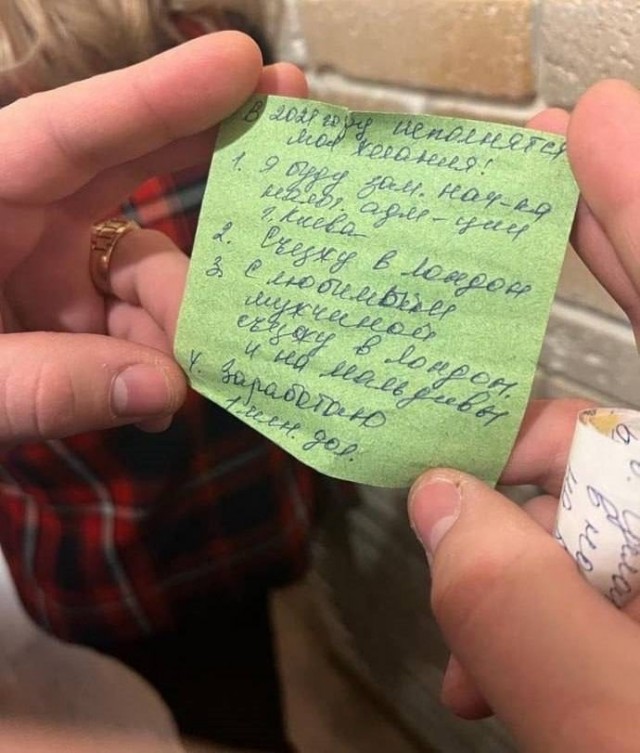 В 2021 году исполнятся
мои желания!
1. Я буду зам. нач-ка
налог. адм-ции
г. Киева
2. Съезжу в Лондон
3. С любимым
мужчиной
съезжу в Лондон,
и на Мальдивы
4. Заработаю
1 млн. дол.